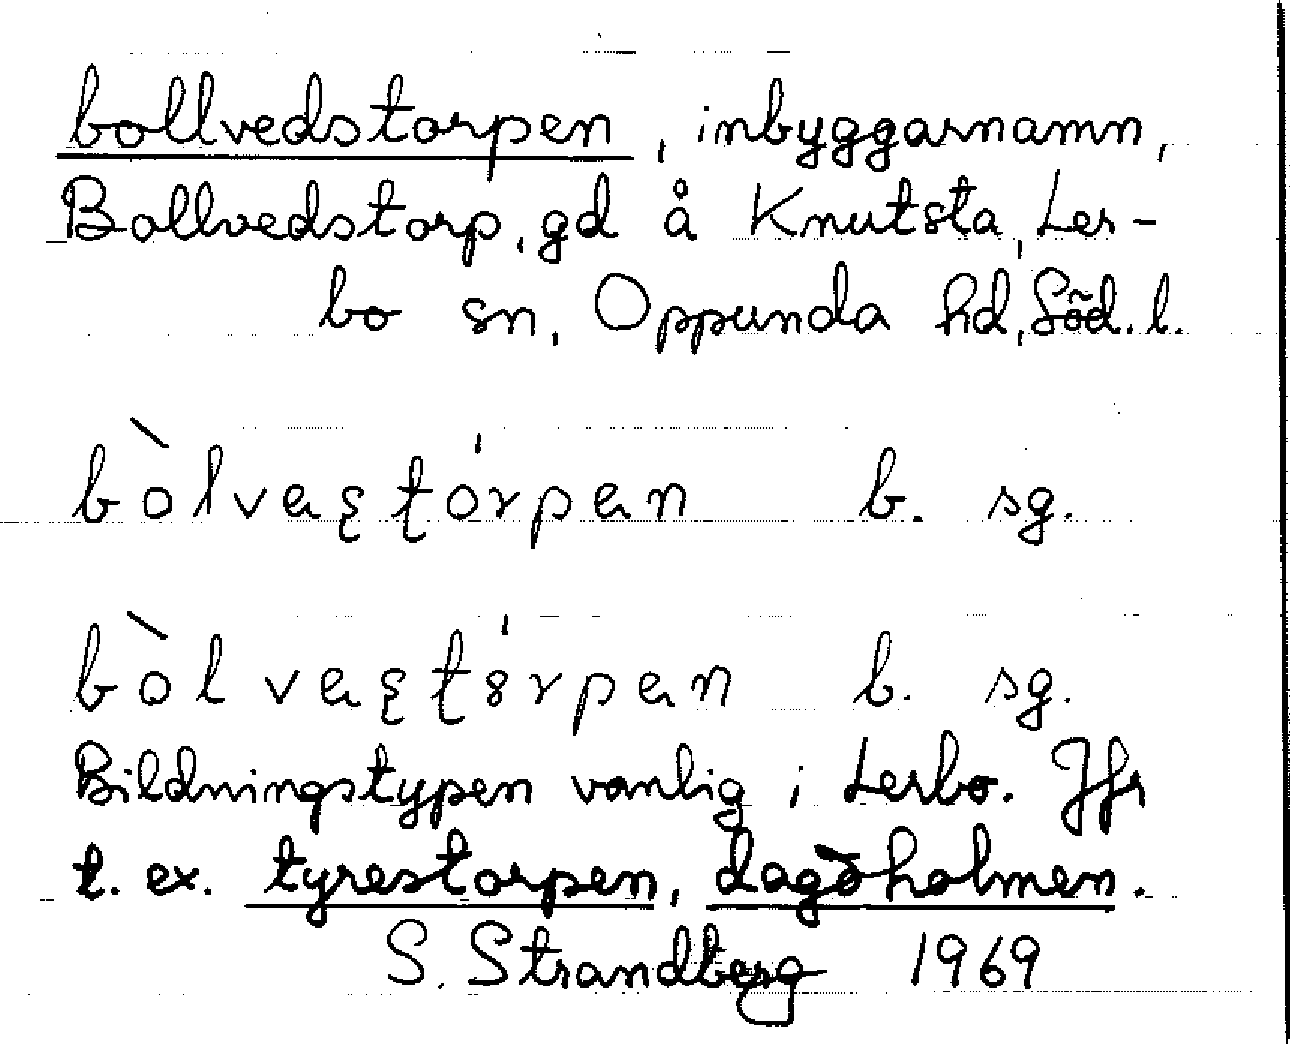 bollvedstorpen, inbyggarnamn,
Bollvedstorp, gd å Knutsta, Ler-
bo sn, Oppunda hd, Söd. l.
bòlvaʂʈórpan b. sg.
bòlvaʂʈɞ́rpan b. sg.
Bildningstypen vanlig i Lerbo. Jfr
t. ex. tyrestorpen, dagöholmen.
S. Strandberg 1969